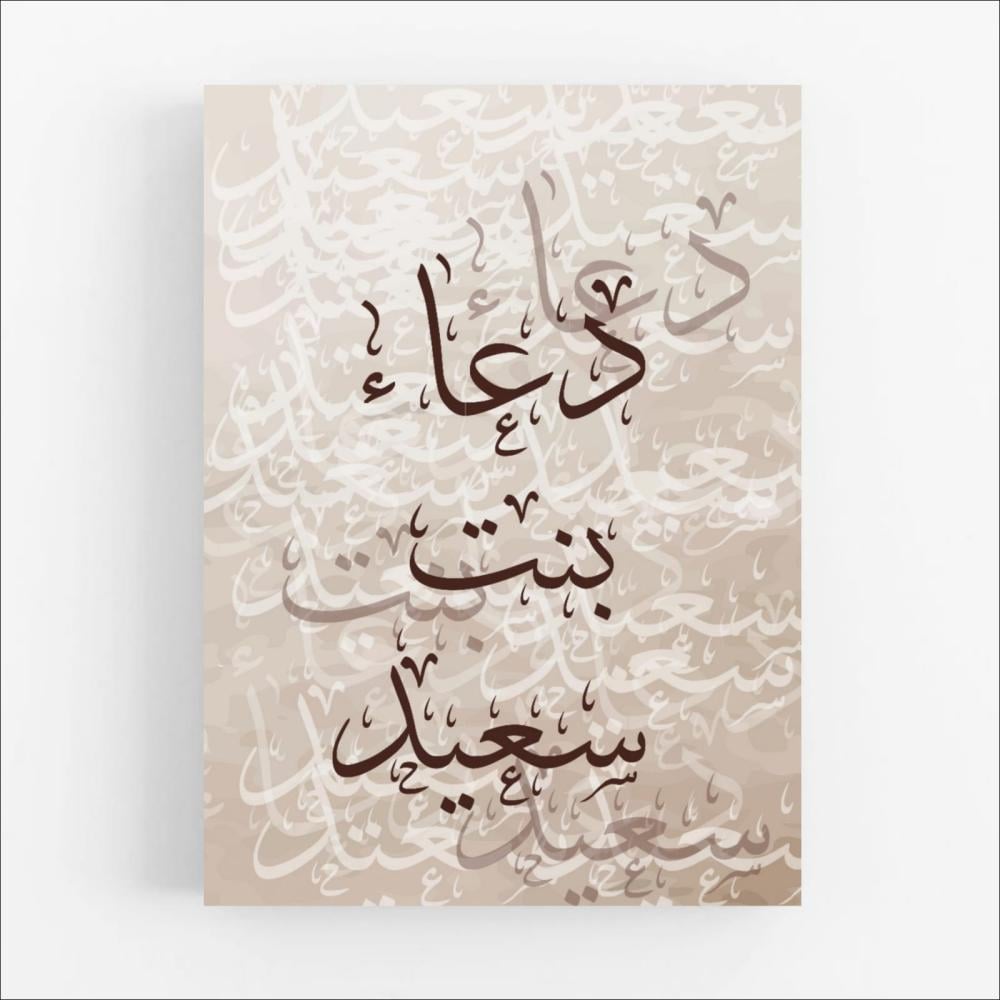 دعاء
بنت
سعيد